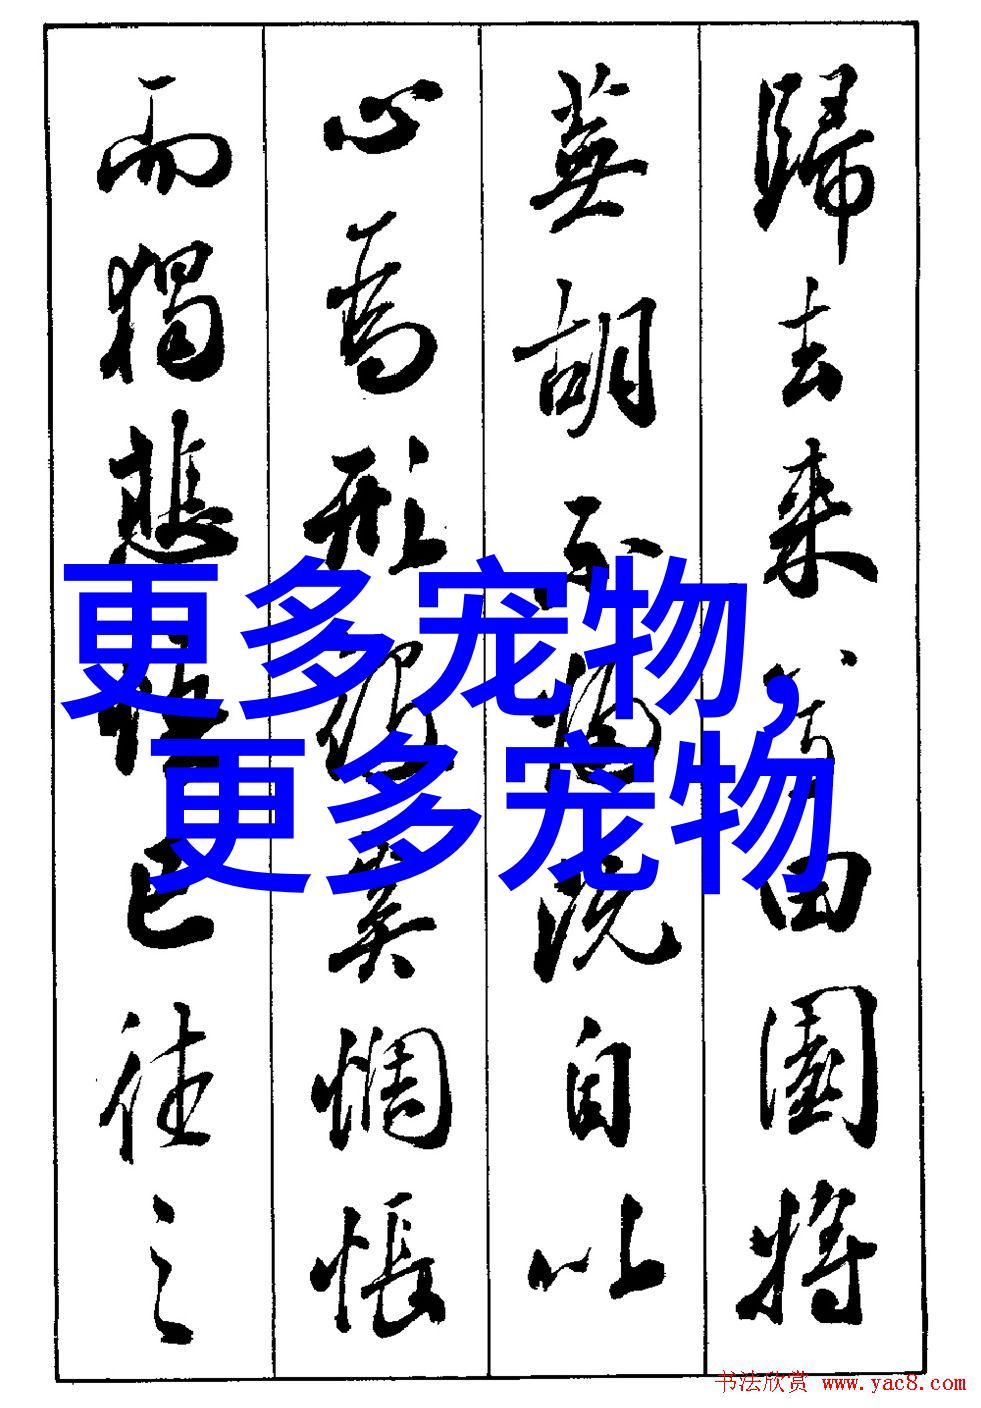 歸去来兮田園將
蕪胡不歸既自以
心為形役奚惆悵
而獨悲悟已往之
更多宠物，
更多宠物
书法欣赏 www.yac8.com